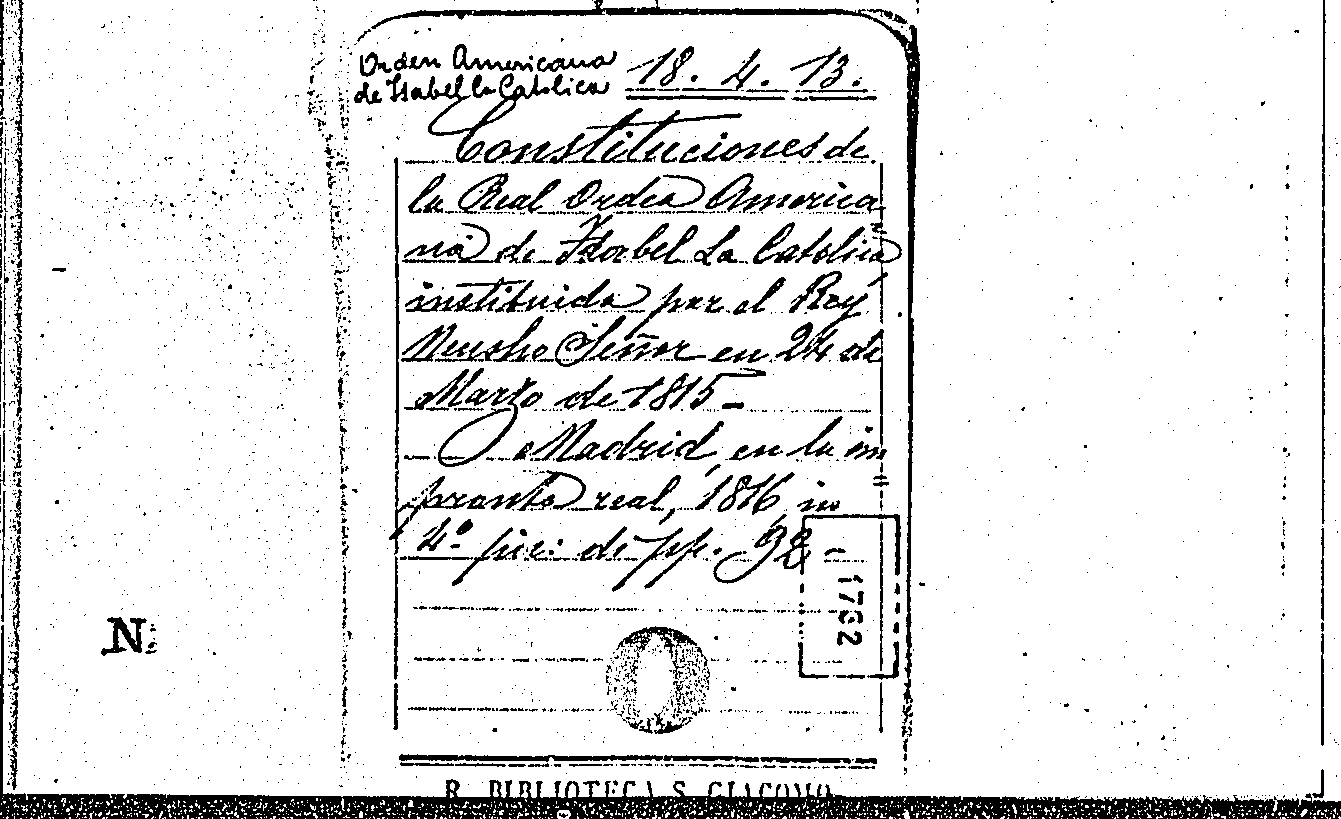 Orden Americana
de Isabel la Catolica
18. 4. 13.
Constituciones de
la Real Orden America
na de Isabel La Catolica
instituida por el Rey
Nuesho Señor en 24 de
Marzo de 1815 -
Madrid, en la im
prenta real, 1816, in
4º pic: di pp. 92 -
1732
N
R. BIBLIOTECA S. GIACOMO